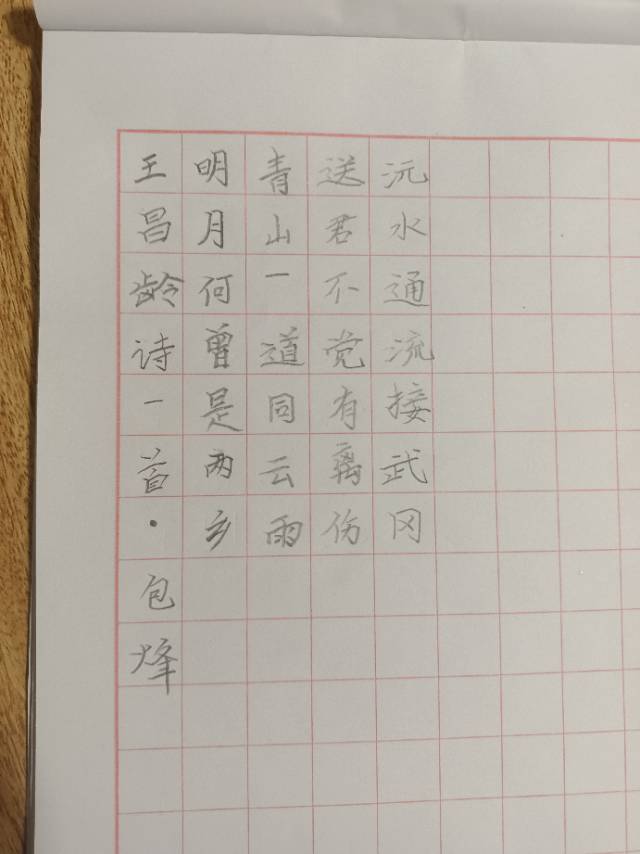 沅水通流接武冈
送君不觉有离伤
青山一道同云雨
明月何曾是两乡
王昌龄诗一首·包烽